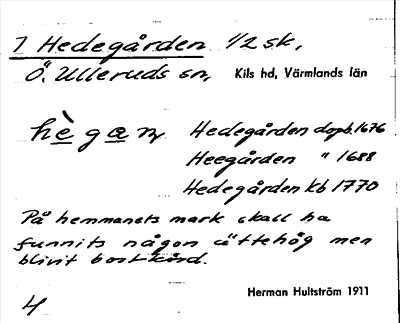 1 Hedegården 1/2 sk,
Ö. Ulleruds sn, Kils hd, Värmlands län
hègan, Hedegården dopb. 1676
Heegården " 1688
Hedegården kb 1770
På hemmanets mark skall ha
funnits någon ättehög men
blivit bortkörd.
Herman Hultström 1911
4